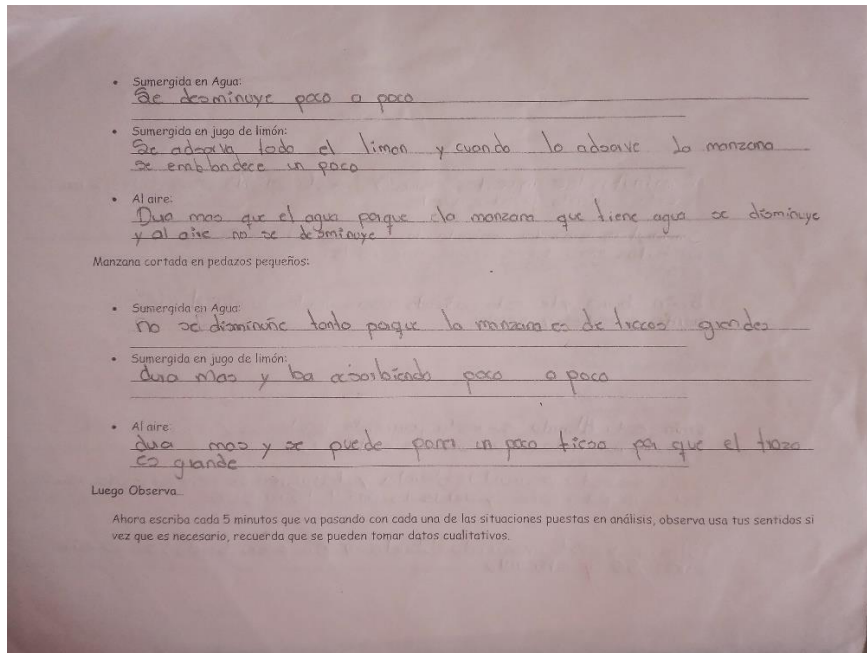 • Sumergida en Agua:
Se desminuye poco a poco
• Sumergida en jugo de limón:
Se adsorva todo el limon y cuando lo adsorve la manzana
se emblandece un poco
• Al aire:
Dura mas que el agua porque la manzana que tiene agua se disminuye
y al aire no se desminuye
Manzana cortada en pedazos pequeños:
• Sumergida en Agua:
no se disminuñe tanto porque la manzana es de trozos grandes
• Sumergida en jugo de limón:
dura mas y ba absorbiendo poco a poco
• Al aire:
dura mas y se puede poner un poco tiesa por que el trozo
es grande
Luego Observa...
Ahora escriba cada 5 minutos que va pasando con cada una de las situaciones puestas en análisis, observa usa tus sentidos si
vez que es necesario, recuerda que se pueden tomar datos cualitativos.